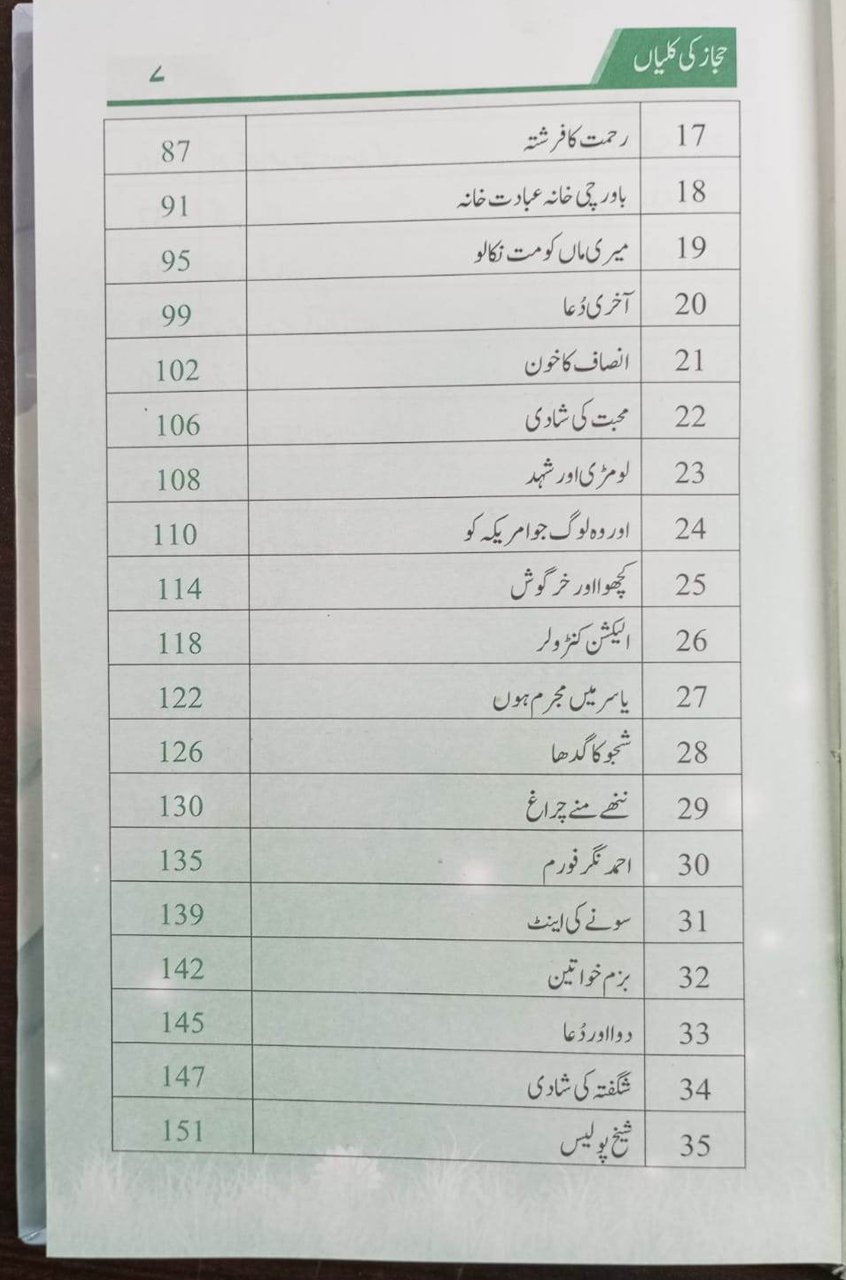 حجاز کی کلیاں
۷
17 رحمت کا فرشتہ 87
18 باورچی خانہ عبادت خانہ 91
19 میری ماں کو مت نکالو 95
20 آخری دُعا 99
21 انصاف کا خون 102
22 محبت کی شادی 106
23 لومڑی اور شہد 108
24 اور وہ لوگ جو امریکہ کو 110
25 کچھوا اور خرگوش 114
26 الیکشن کنڑولر 118
27 یاسر میں مجرم ہوں 122
28 شجو کا گدھا 126
29 ننھے منے چراغ 130
30 احمد نگر فورم 135
31 سونے کی اینٹ 139
32 بزم خواتین 142
33 دوا اور دُعا 145
34 شگفتہ کی شادی 147
35 شیخ پولیس 151